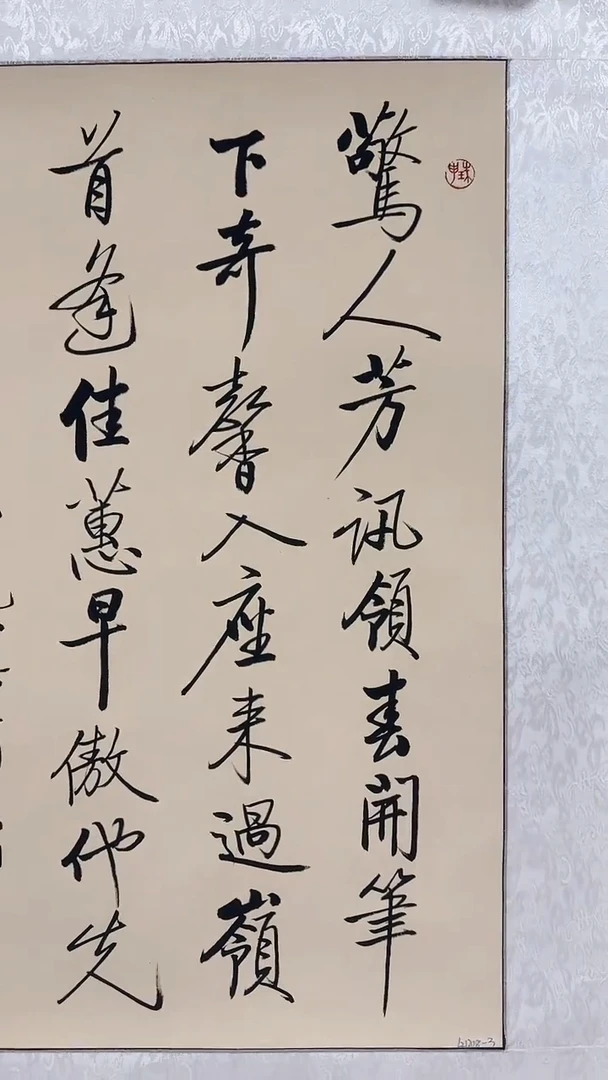 驚人芳訊領春開筆
下奇馨入座來過嶺
首逢佳蕙早傲他先